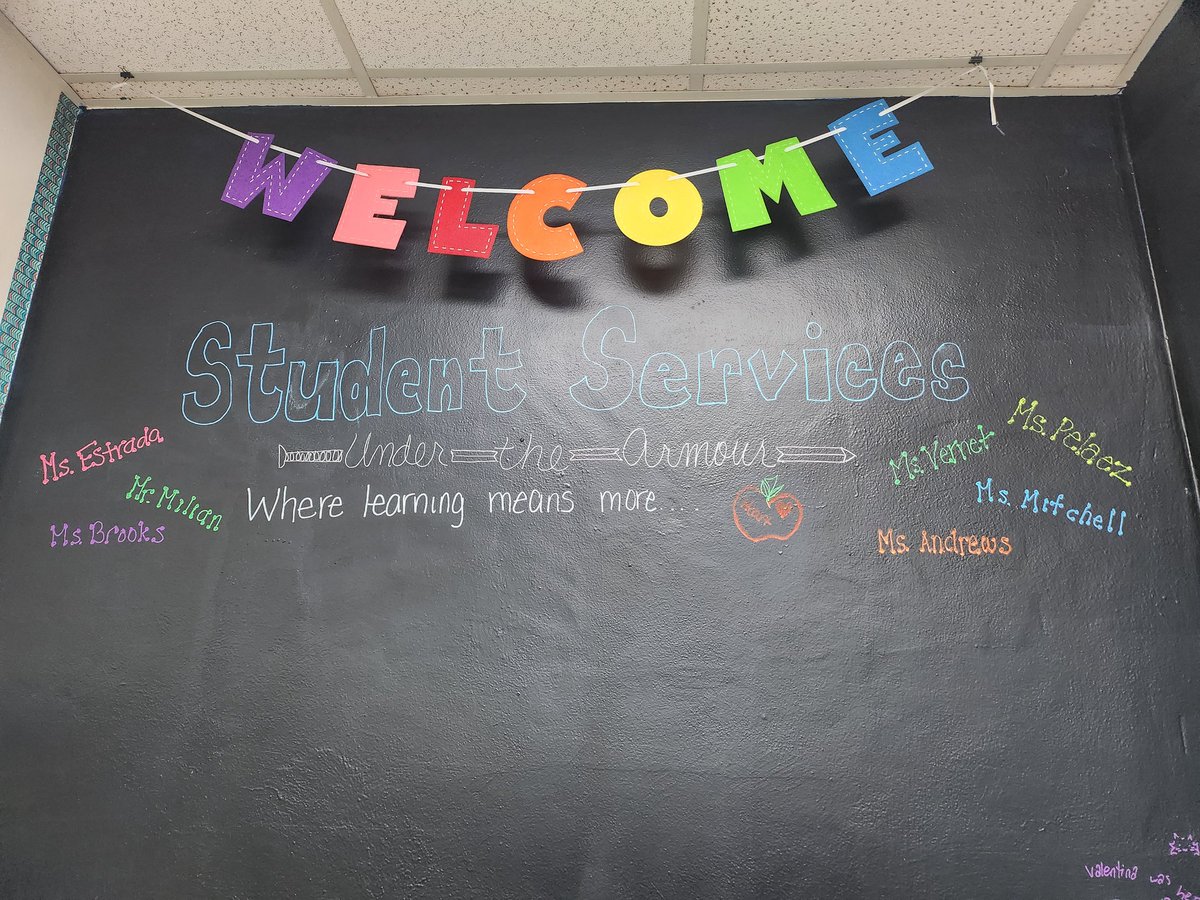 WELCOME
Student Services
Under the Armour
Where learning means more...
Ms. Estrada
Mr. Milian
Ms. Brooks
Ms. Vernet
Ms. Pelaez
Ms. Mitchell
Ms. Andrews
valentina was